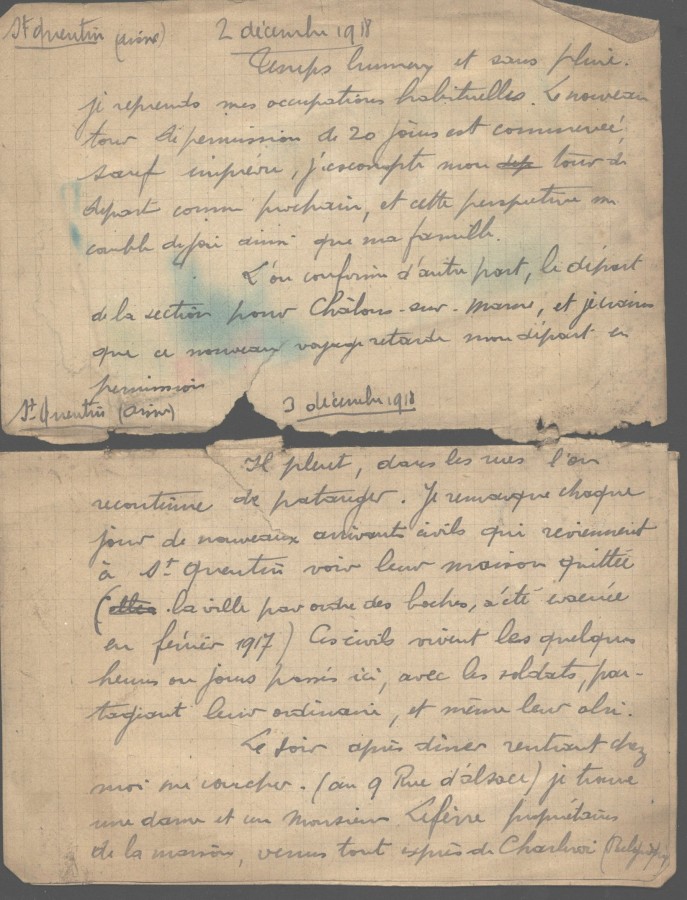 St Quentin (aisne) 2 décembre 1918
Temps humide et sans pluie.
je reprends mes occupations habituelles. Le nouveau
tour de permission de 20 jours est commencé,
sauf imprévu, j'escompte mon tour de
départ comme prochain, et cette perspective me
comble de joie ainsi que ma famille.
L'on confirme d'autre part, le départ
de la section pour Châlons-sur-Marne, et je crains
que ce nouveau voyage retarde mon départ en
permission
St Quentin (aisne) 3 décembre 1918
Il pleut, dans les rues l'on
recontinue de patauger. Je remarque chaque
jour de nouveaux arrivants civils qui reviennent
à St Quentin voir leur maison quittée
(la ville par ordre des boches, a été évacuée
en février 1917) Ces civils vivent les quelques
heures ou jours passés ici, avec les soldats, par-
tageant leur ordinaire, et même leur abri.
Le soir après diner rentrant chez
moi me coucher. (au 9 Rue d'alsace) je trouve
une dame et un Monsieur Lefèvre propriétaires
de la maison, venus tout exprès de Charleroi